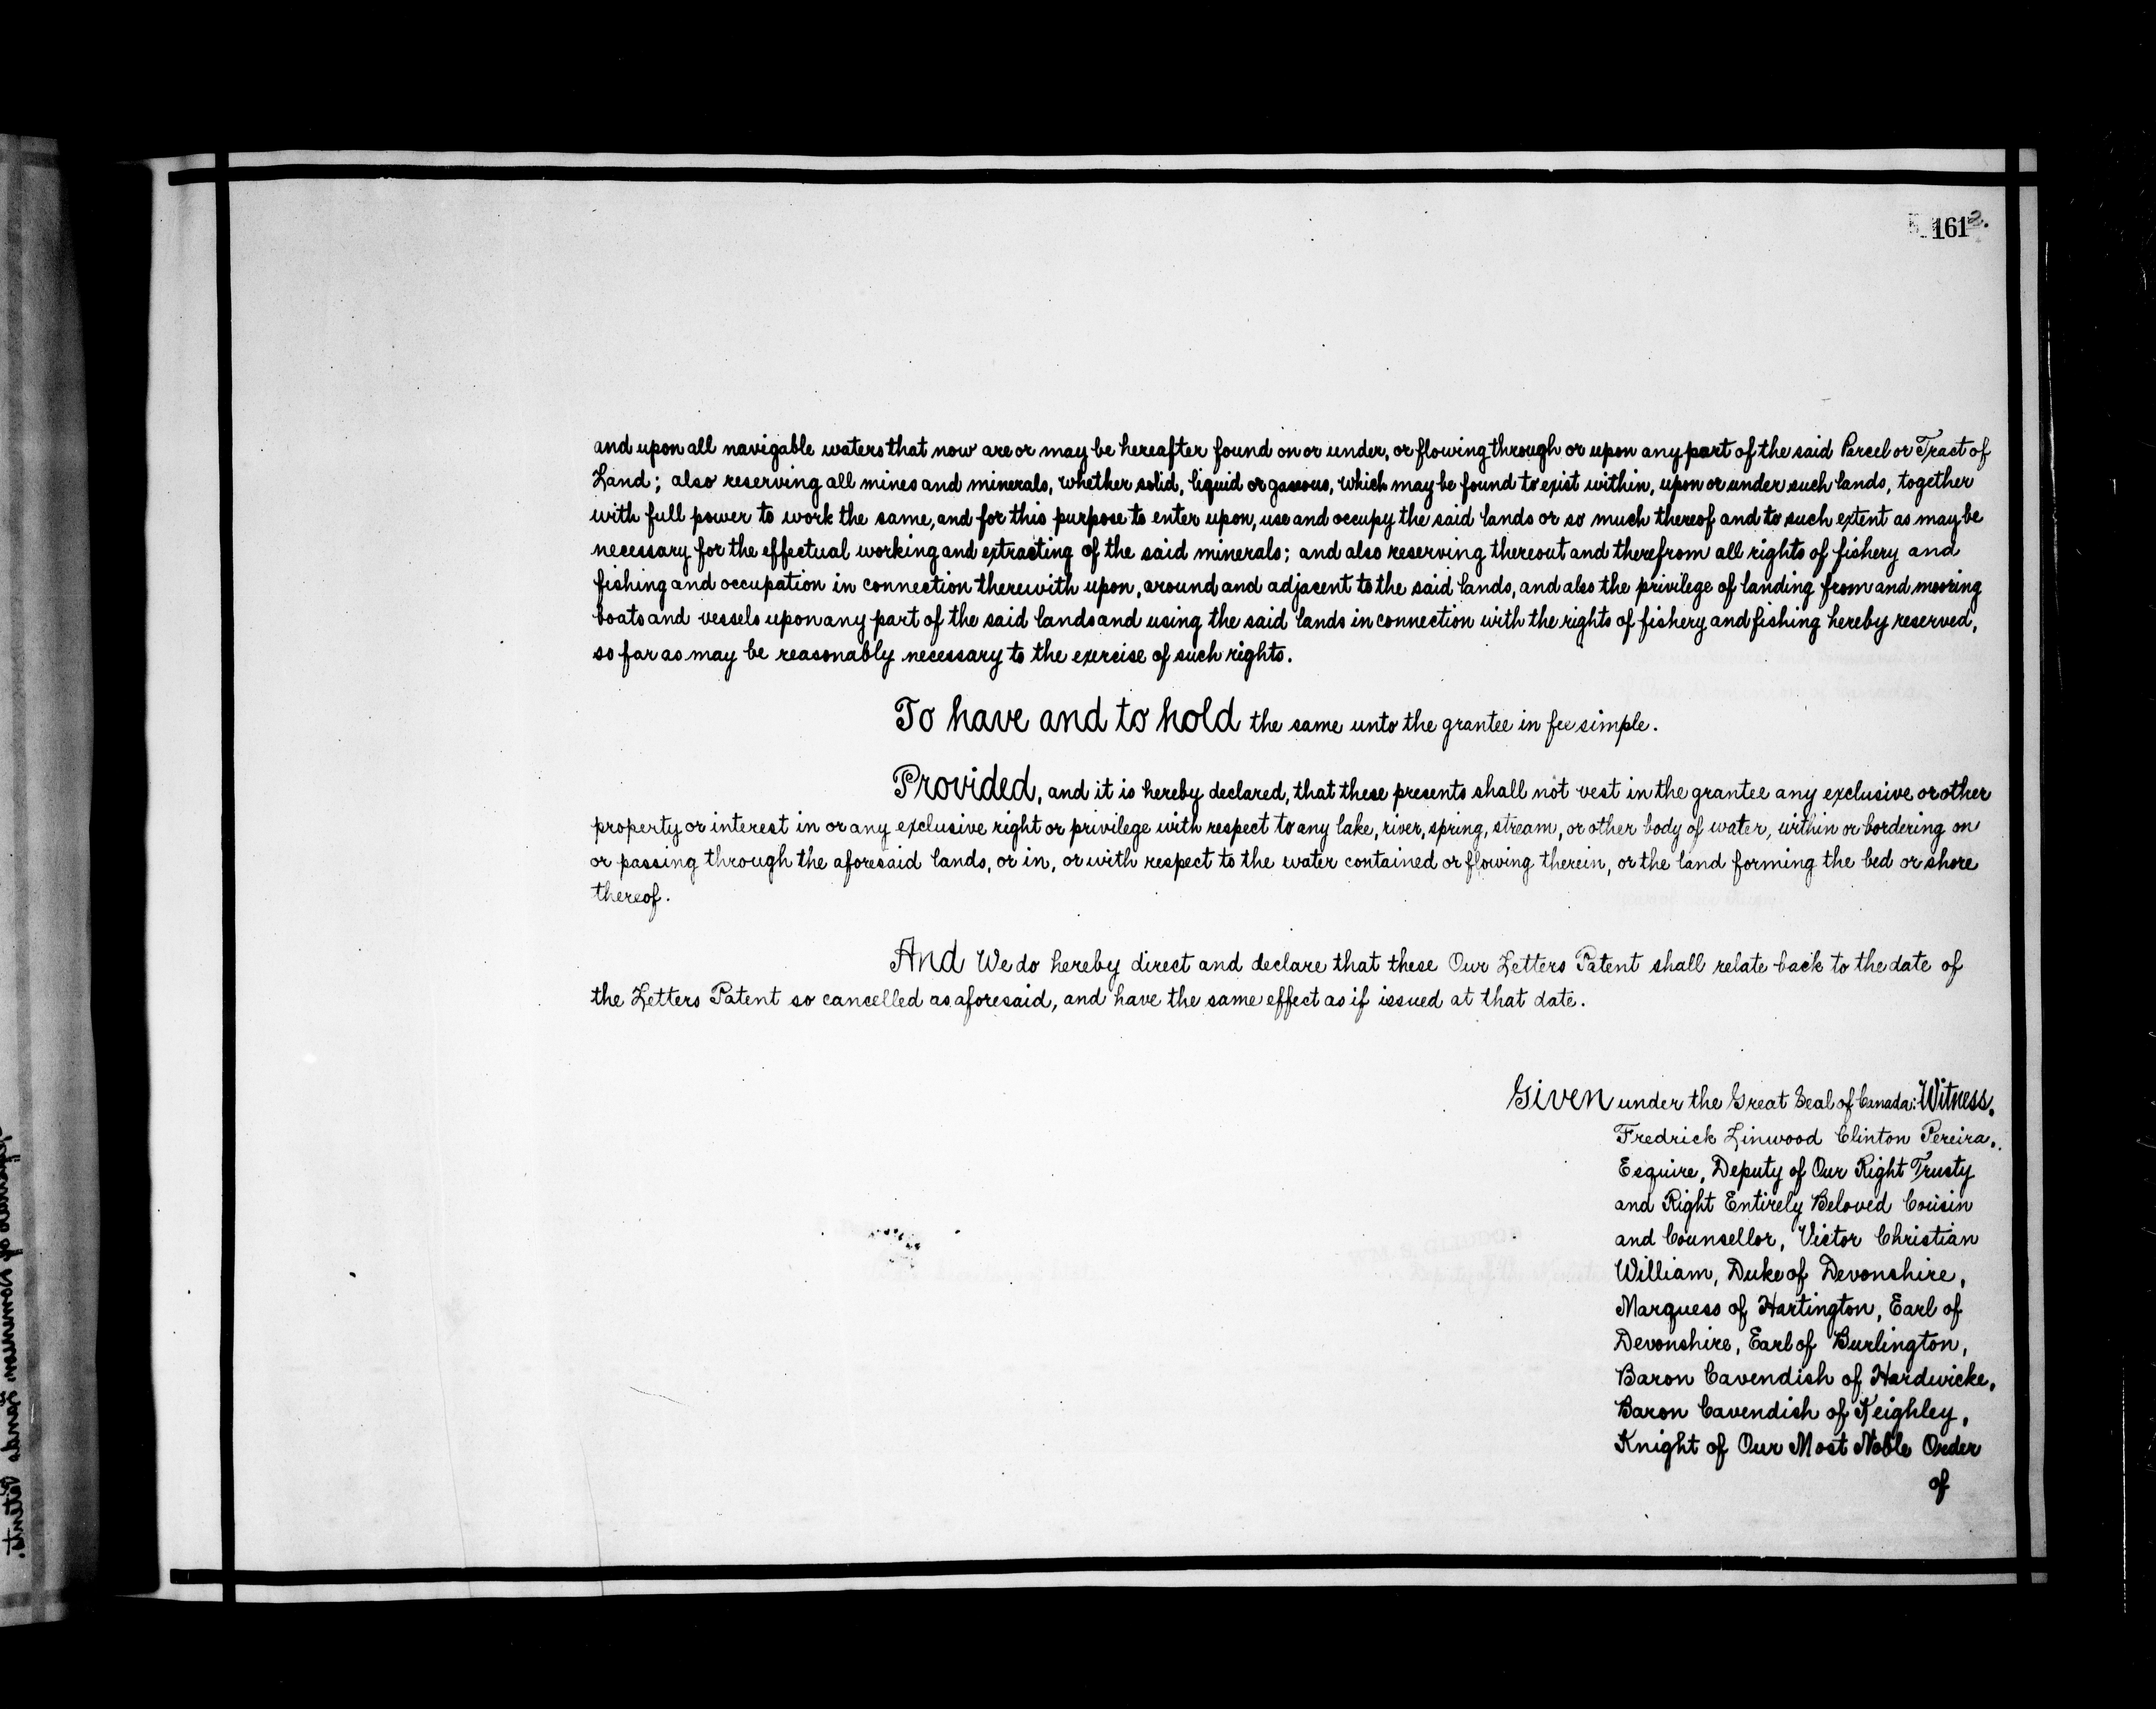 161 2.
and upon all navigable waters that now are or may be hereafter found on or under, or flowing through or upon any part of the said Parcel or Tract of
Land; also reserving all mines and minerals, whether solid, liquid or gaseous, which may be found to exist within, upon or under such lands, together
with full power to work the same, and for this purpose to enter upon, use and occupy the said lands or so much thereof and to such extent as may be
necessary for the effectual working and extracting of the said minerals; and also reserving thereout and therefrom all rights of fishery and
fishing and occupation in connection therewith upon, around and adjacent to the said lands, and also the privilege of landing from and mooring
boats and vessels upon any part of the said lands and using the said lands in connection with the rights of fishery and fishing hereby reserved,
so far as may be reasonably necessary to the exercise of such rights.
To have and to hold the same unto the grantee in fee simple.
Provided, and it is hereby declared, that these presents shall not vest in the grantee any exclusive or other
property or interest in or any exclusive right or privilege with respect to any lake, river, spring, stream, or other body of water, within or bordering on
or passing through the aforesaid lands, or in, or with respect to the water contained or flowing therein, or the land forming the bed or shore
thereof.
And We do hereby direct and declare that these Our Letters Patent shall relate back to the date of
the Letters Patent so cancelled as aforesaid, and have the same effect as if issued at that date.
Given under the Great Seal of Canada: Witness,
Fredrick Linwood Clinton Pereira,
Esquire, Deputy of Our Right Trusty
and Right Entirely Beloved Cousin
and Counsellor, Victor Christian
William, Duke of Devonshire,
Marquess of Hartington, Earl of
Devonshire, Earl of Burlington,
Baron Cavendish of Hardwicke,
Baron Cavendish of Keighley,
Knight of Our Most Noble Order
of